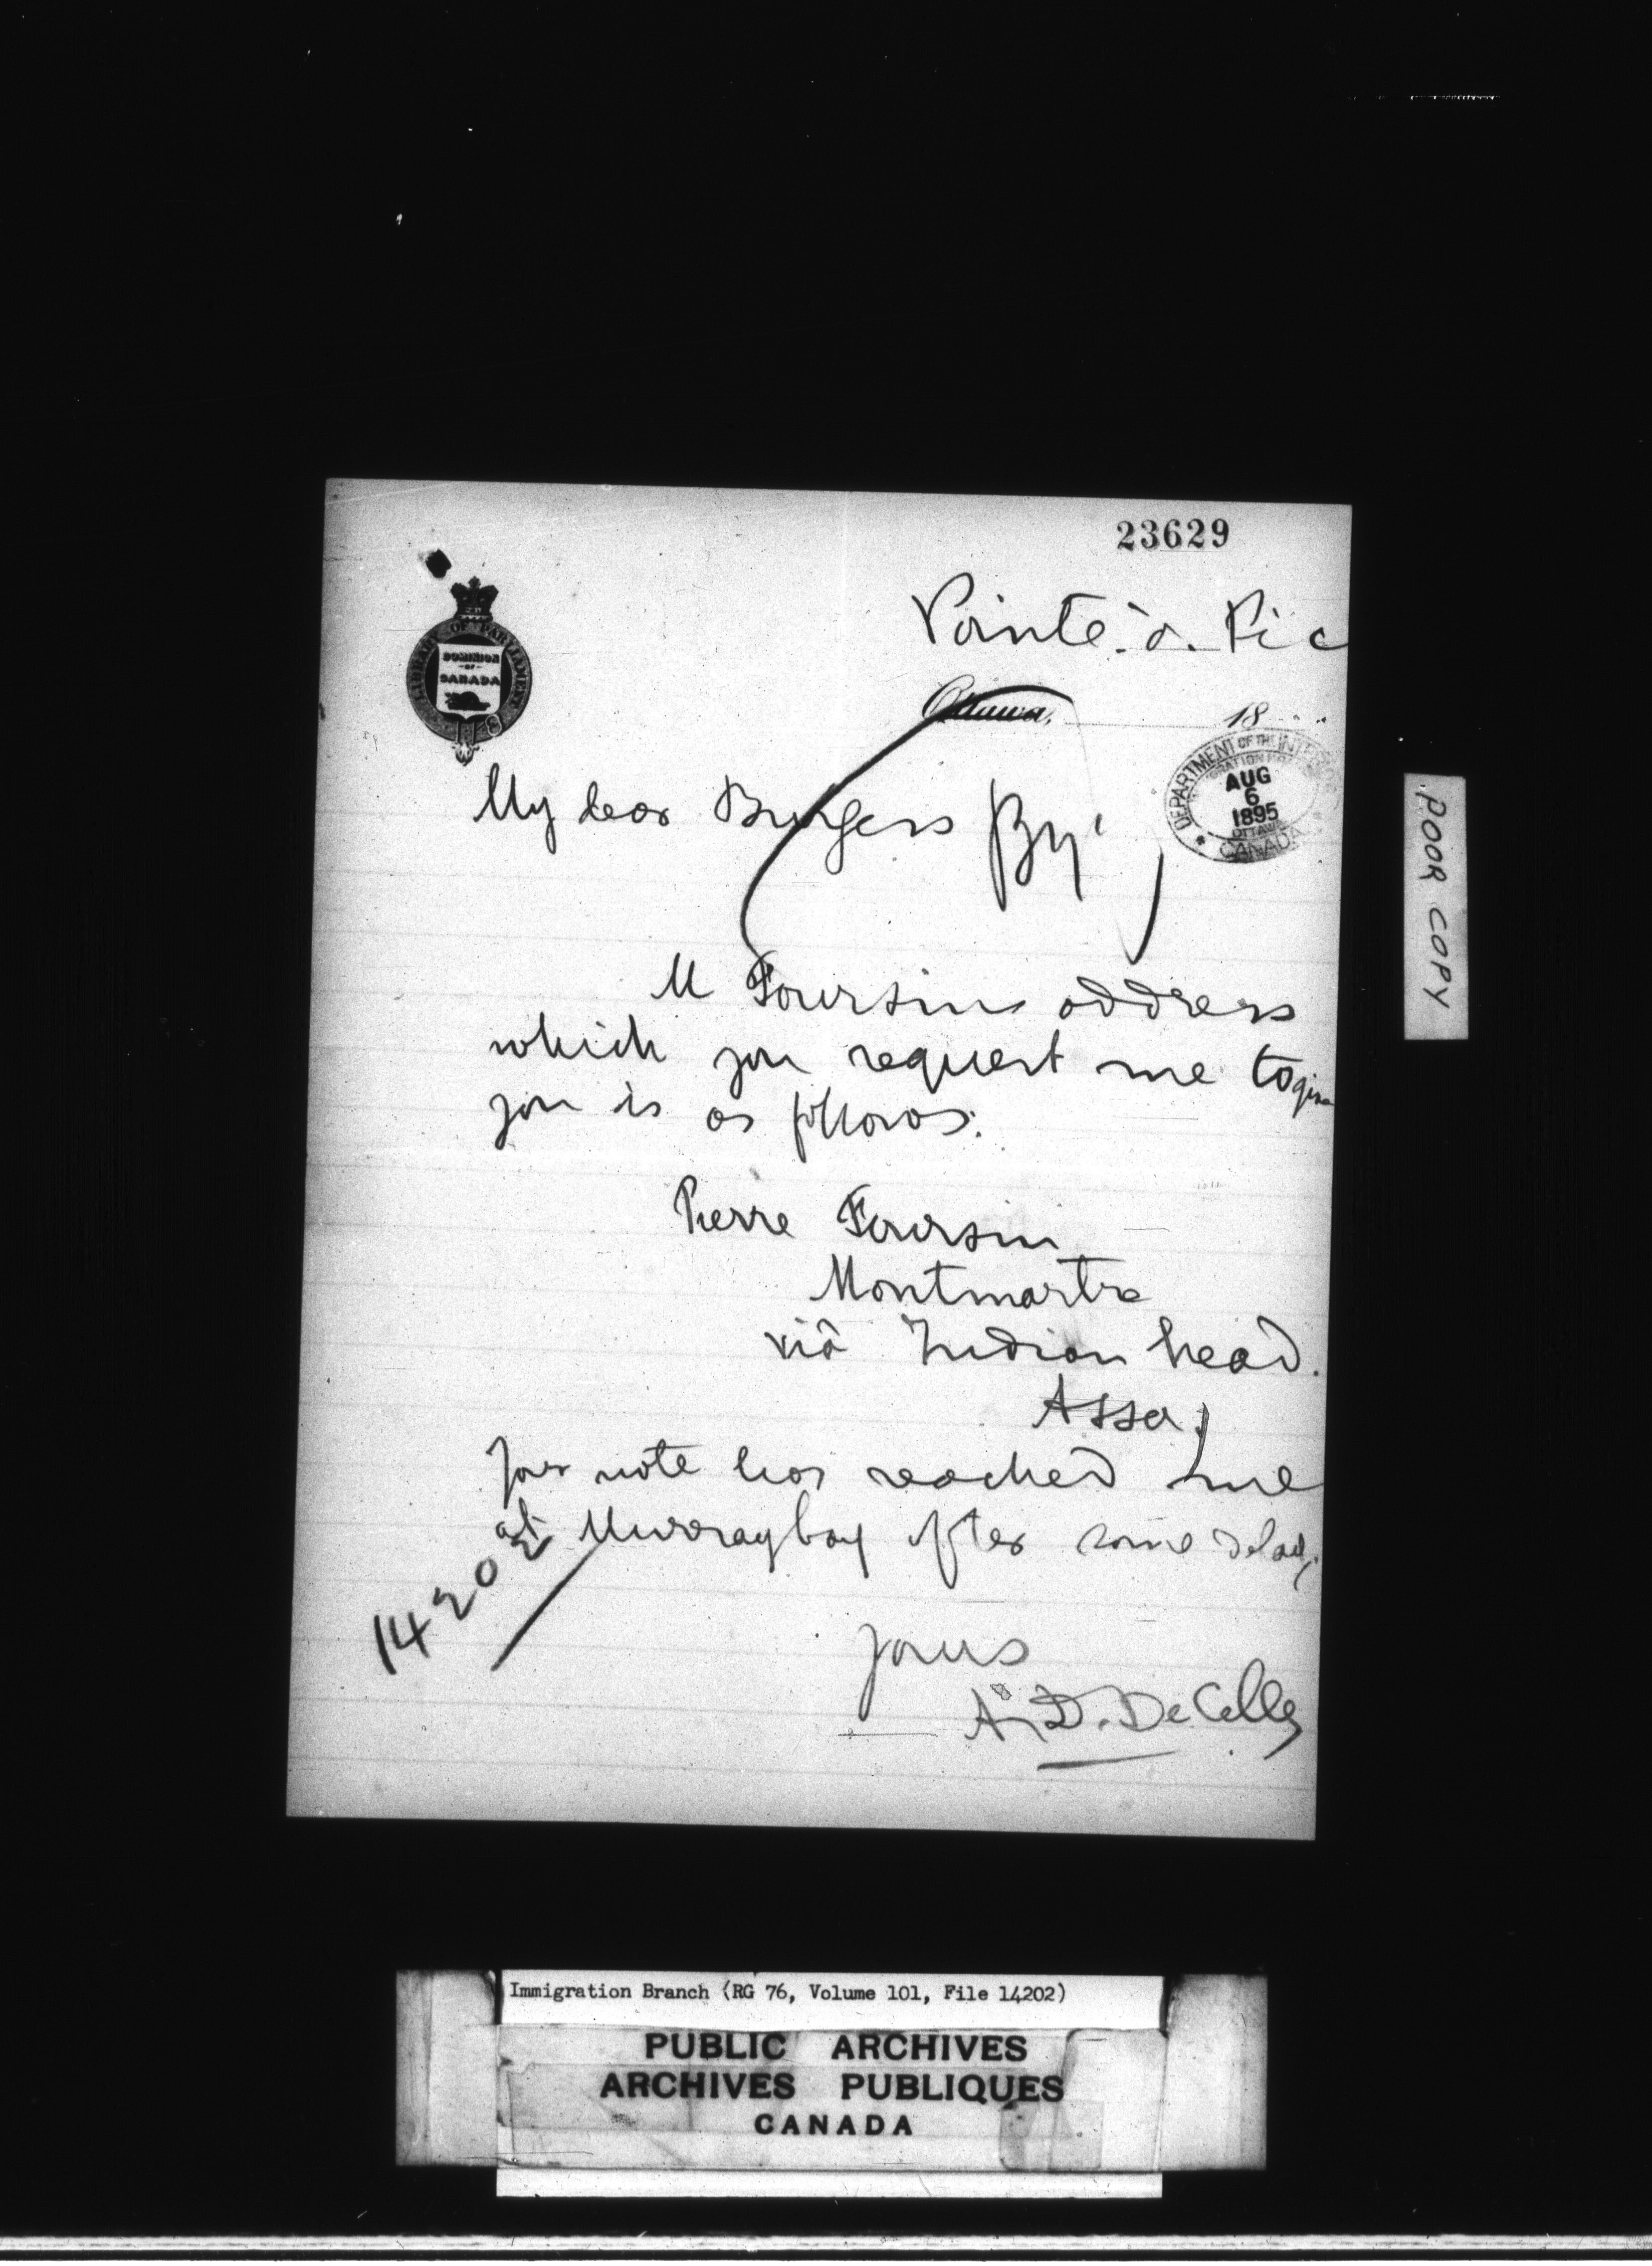 23629
Pointe-à-Pic
LIBRARY OF PARLIAMENT
DOMINION
OF
CANADA
Ottawa, 18
DEPARTMENT OF THE INTERIOR
AUG
6
1895
OTTAWA
CANADA
My dear Burgess
M Foursin address
which you request me to give
you is as follows:
Pierre Foursin
Montmartre
viâ Indian head.
Assa
Your note has reached me
at Murraybay after some delay.
14202
Yours
A. D. DeCelles
POOR COPY
Immigration Branch (RG 76, Volume 101, File 14202)
PUBLIC ARCHIVES
ARCHIVES PUBLIQUES
CANADA